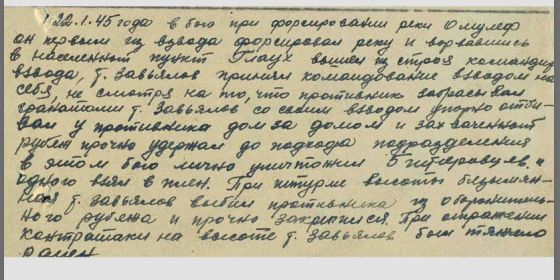 22.1.45 года в бою при форсировании реки Омулеф
он первым из взвода форсировал реку и ворвавшись
в населенный пункт Глаух вышел из строя командир
взвода, т. Завьялов принял командование взводом на
себя, не смотря на то, что противник забрасывал
гранатами т. Завьялов со своим взводом упорно отби-
вал у противника дом за домом и захваченный
рубеж прочно удержал до подхода подразделения
в этом бою лично уничтожил 5 гитлеровцев, и
одного взял в плен. При штурме высоты безымян-
ная т. Завьялов выбил противника из оборонитель-
ного рубежа и прочно закрепился. При отражении
контратаки на высоте т. Завьялов был тяжело
ранен